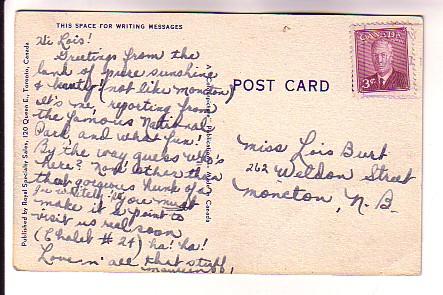 THIS SPACE FOR WRITING MESSAGES
Hi Lois!
Greetings from the
land of pure sunshine
& beauty! (not like moncton)
It's me, reporting from
the famous National
Park, and what fun!
By the way guess who's
here? None other than
that gorgeous hunk of a
you must
make it a point to
visit us real soon
(Chalet # 24) ha! ha!
Love n' all that stuff,
maureen
Published by Royal Specialty Sales, 120 Queen E., Toronto, Canada
Canada
POST CARD
CANADA
POSTES POSTAGE
3¢
miss Lois Burt
262 Weldon Street
moncton, N. B.